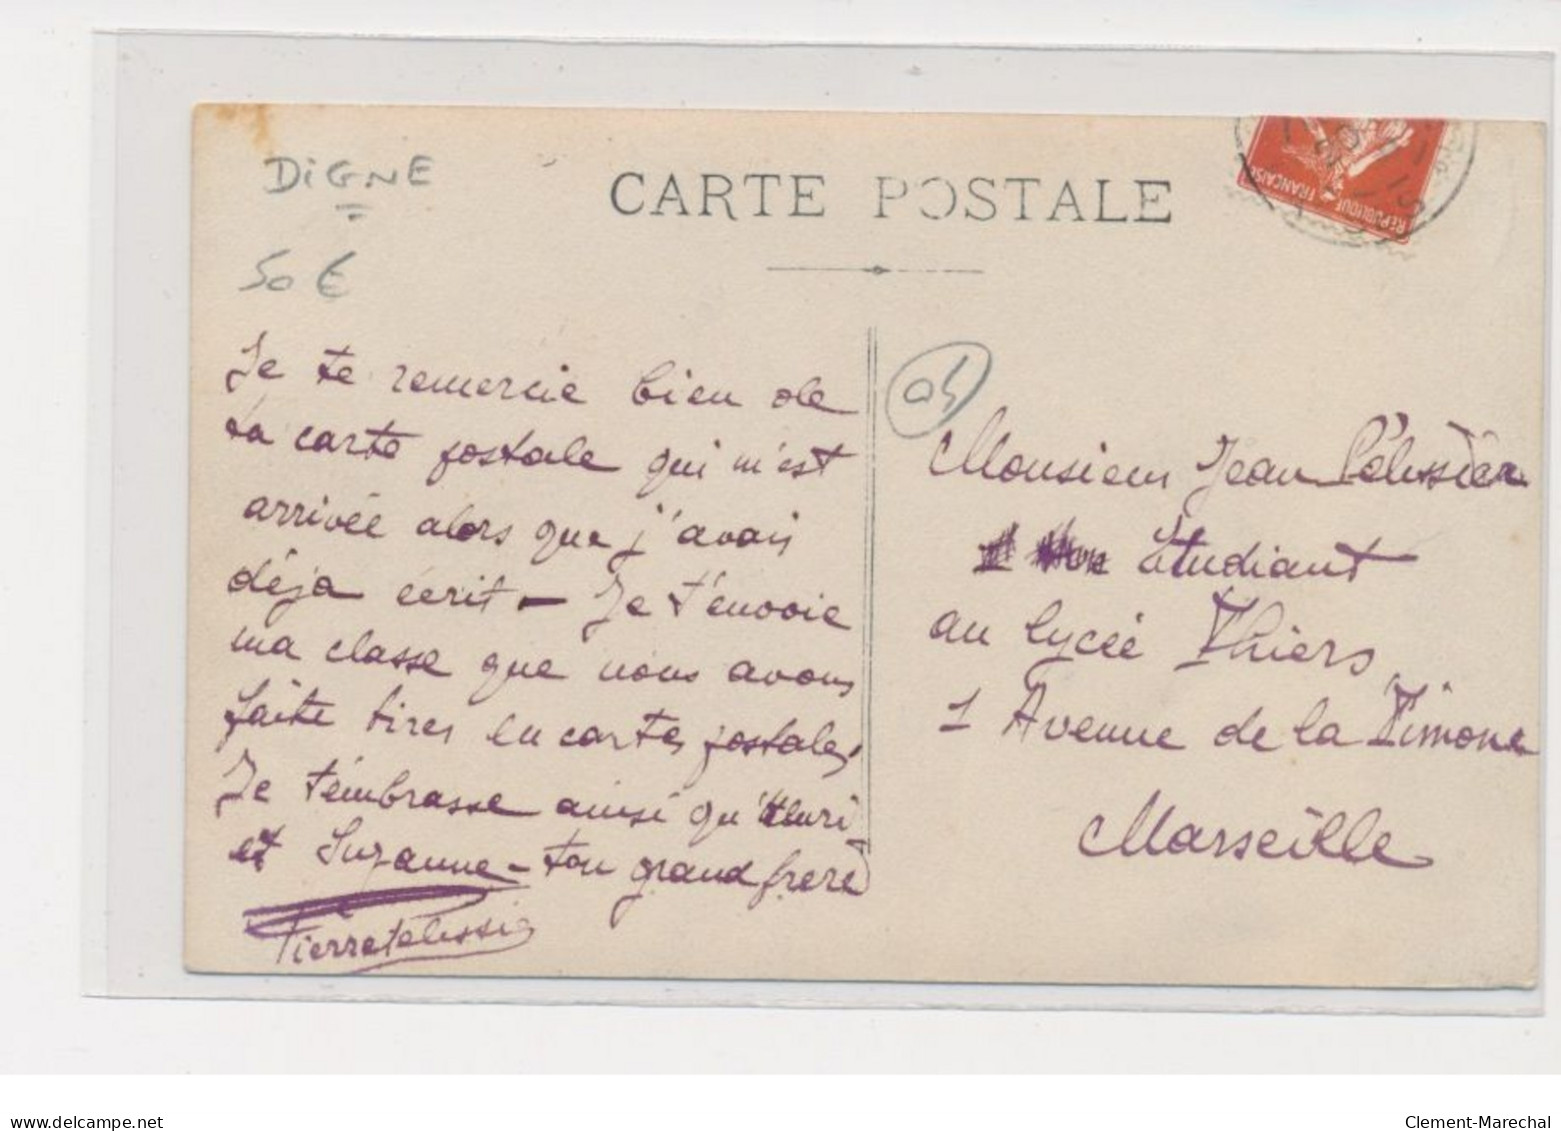 DiGNE
CARTE POSTALE
50 €
04
REPUBLIQUE FRANÇAISE
Je te remercie bien de
ta carte postale qui m'est
arrivée alors que j'avais
déja écrit — Je t'envoie
ma classe que nous avons
faite tirer en cartes postales.
Je t'embrasse ainsi qu'Henri
et Suzanne — ton grand frere
Pierre Pelissier
Monsieur Jean Pélissier
Etudiant
au lycée Thiers
1 Avenue de la Timone
Marseille
www.delcampe.net
Clement-Marechal